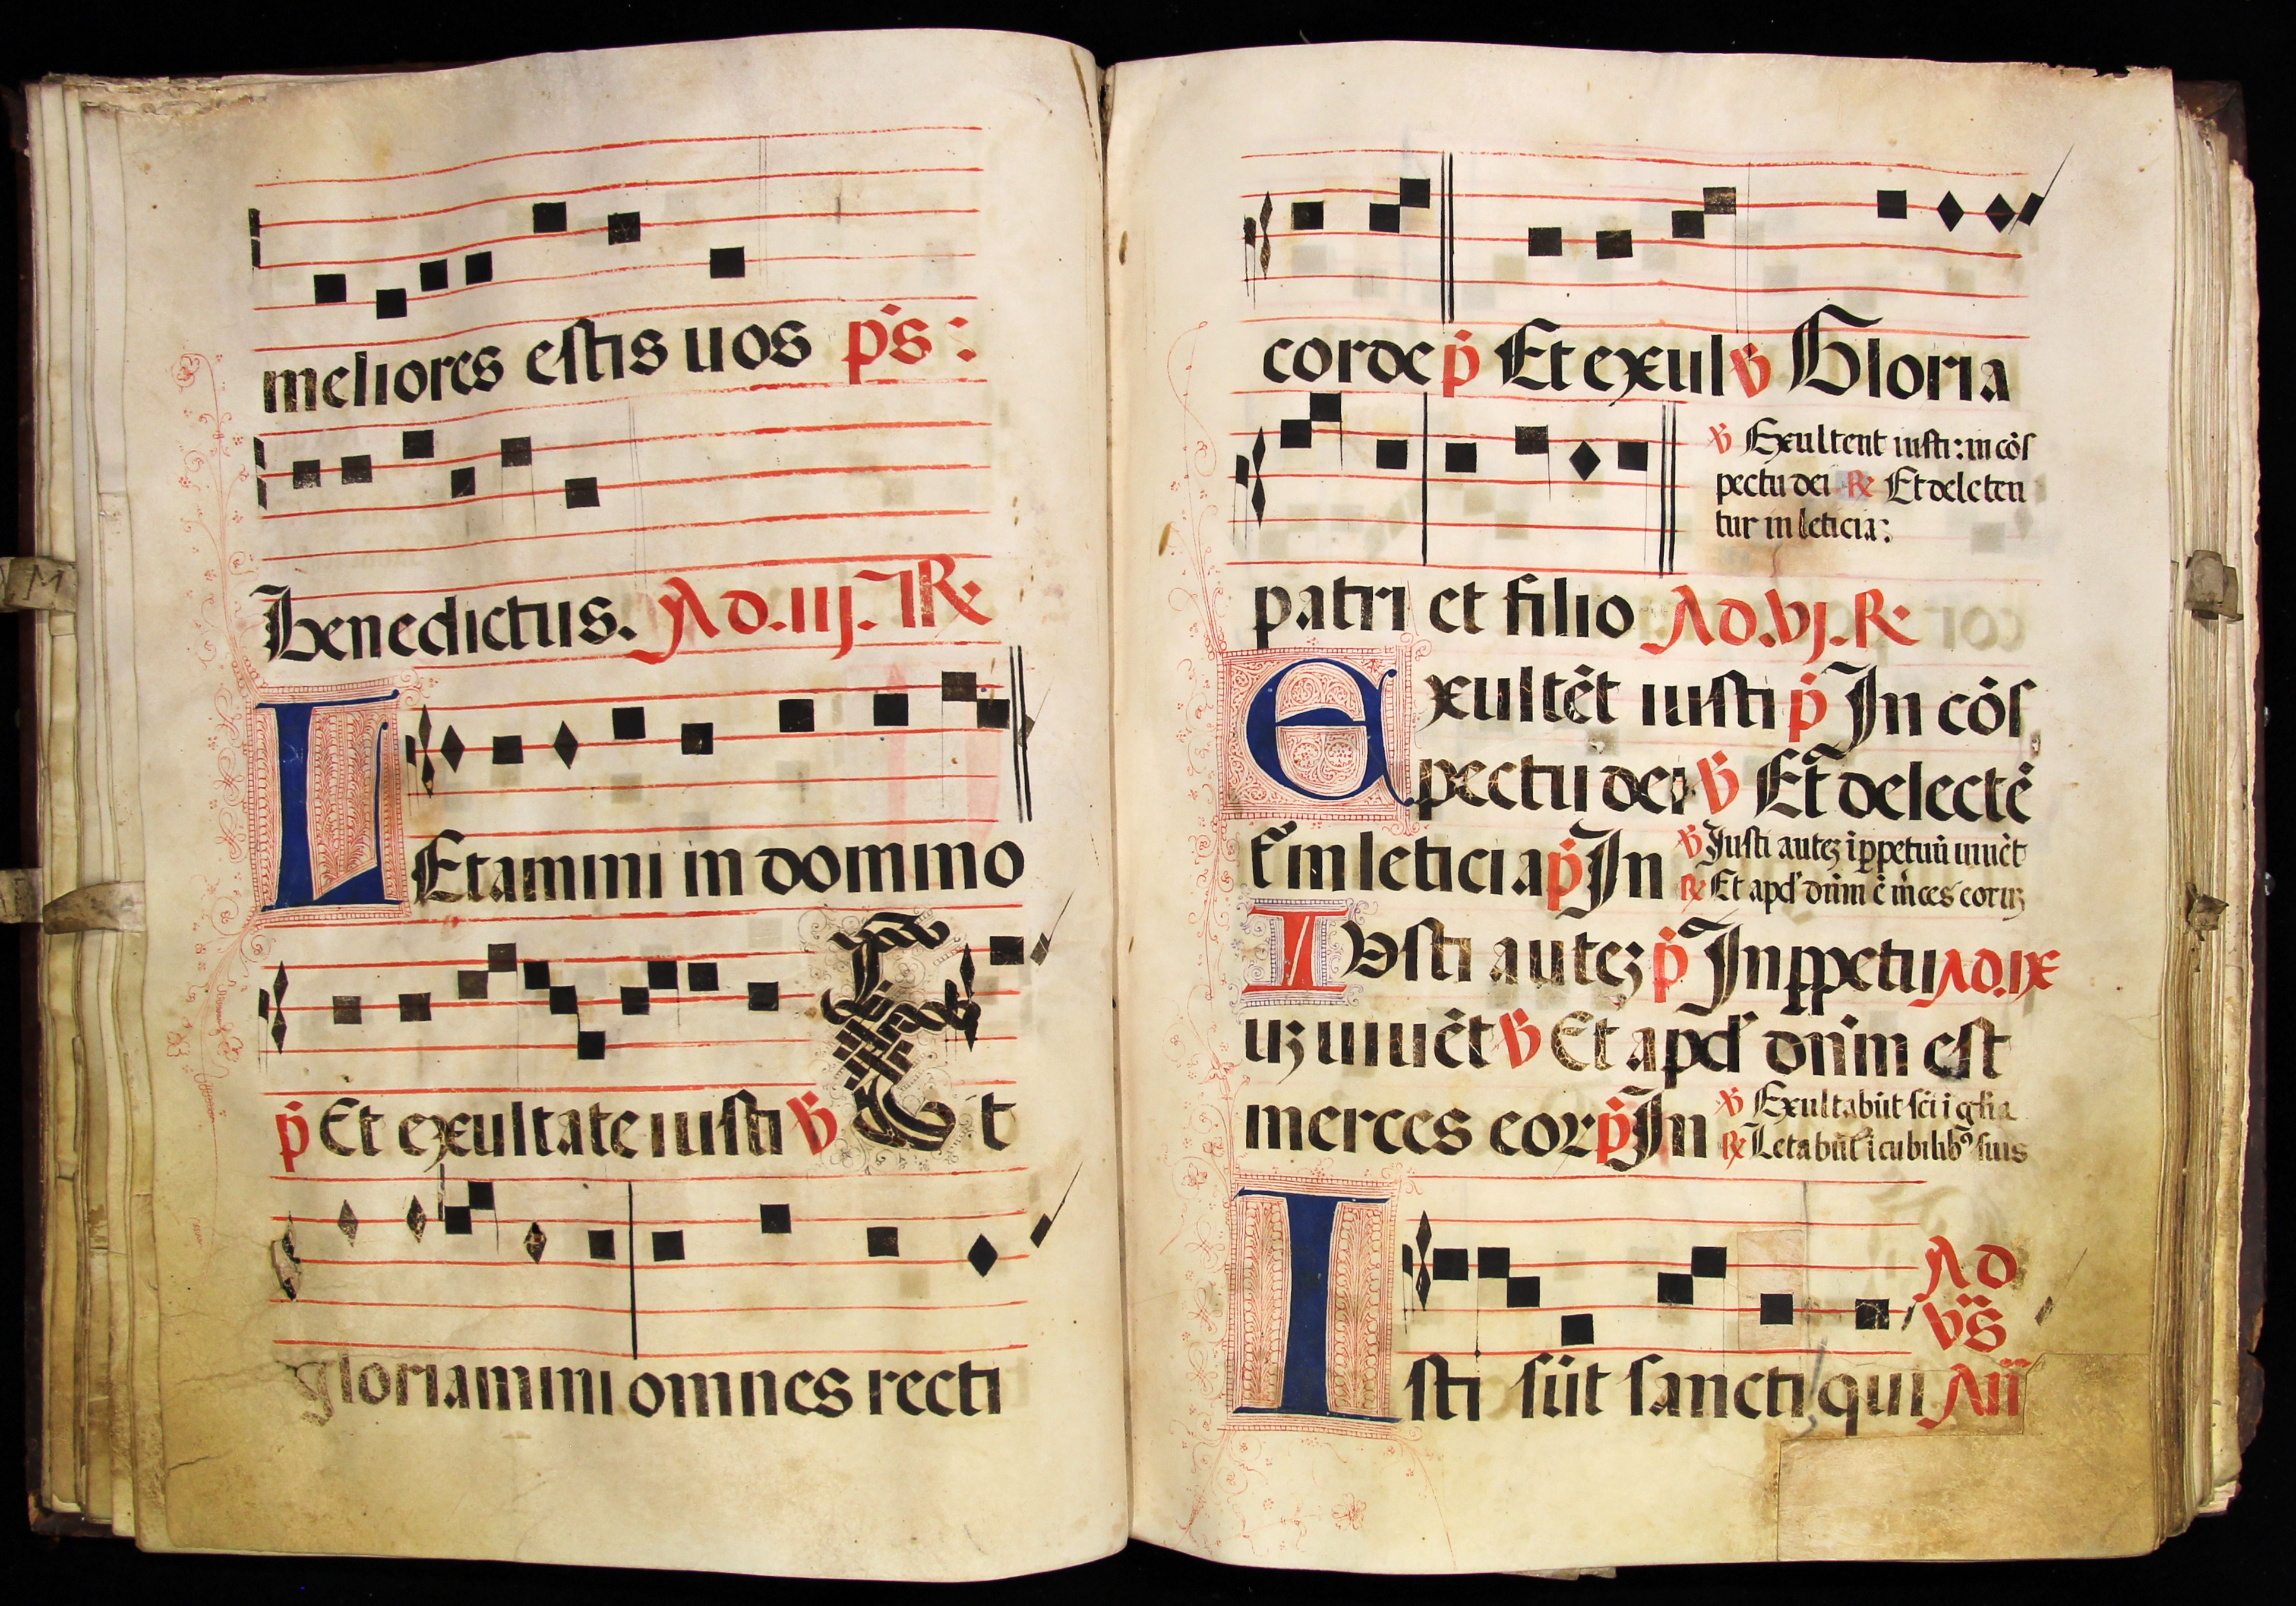 meliores estis uos ps :
benedictus. Ad .iij. R
LEtamini in domino
p Et exultate iusti V Et
gloriamini omnes recti
corde p Et exul V Gloria
V Exultent iusti: in cõs
pectu dei R Et delecten
tur in leticia:
patri et filio Ad .vj. R
Exultẽt iusti p In cõs
pectu dei V Et delectẽ
t in leticia p In
V Iusti autez ĩ ppetuũ uiuẽt
R Et apd dñm ẽ m̃ces coruz
IVsti autez p In ppetu Ad .ix
uz uiuẽt V Et apd dñm est
merces eor p In
V Exultabũt sci ĩ glia
R Letabũt ĩ cubilibꝰ suis
Ad
vs
Isti sũt sancti qui Añ
M